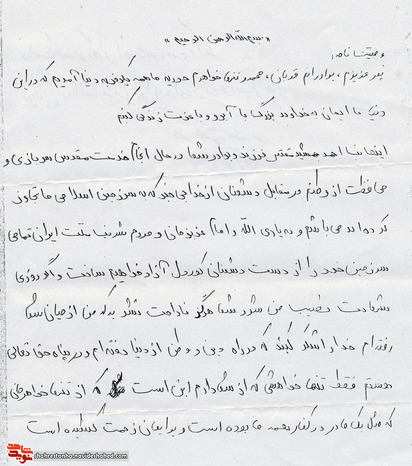 « بسم الله الرحمن الرحیم »
وصیتنامه:
پدر عزیزم، برادرانم قربان، صمد و تنها خواهرم حوریه ما همه مان به دنیا آمدیم که در این
دنیا با ایمان به خداوند بزرگ با آبرو و با عزت زندگی کنیم
اینجانب احد فرزند و برادر شما در حال انجام خدمت مقدس سربازی و
محافظت از وطنم در مقابل دشمنان از خدا بی خبر که به سرزمین اسلامی ما تجاوز
کرده اند می باشم و به یاری الله و امام عزیزمان و مردم شریف ملت ایران تمامی
سرزمین خود را از دست دشمنان کوردل آزاد خواهیم ساخت و اگر روزی
شهادت نصیب من شود شما هرگز ناراحت نشوید که من از میان شما
رفته ام خدا را شکر کنید که در راه دین و وطن از دنیا رفته ام و در پناه حق تعالی
هستم فقط تنها خواهشی که از شما دارم این است که از تنها خواهرمان
که مثل یک مادر در کنار همه ما بوده است و برایمان زحمت کشیده است
shahrestanha.navideshahed.com